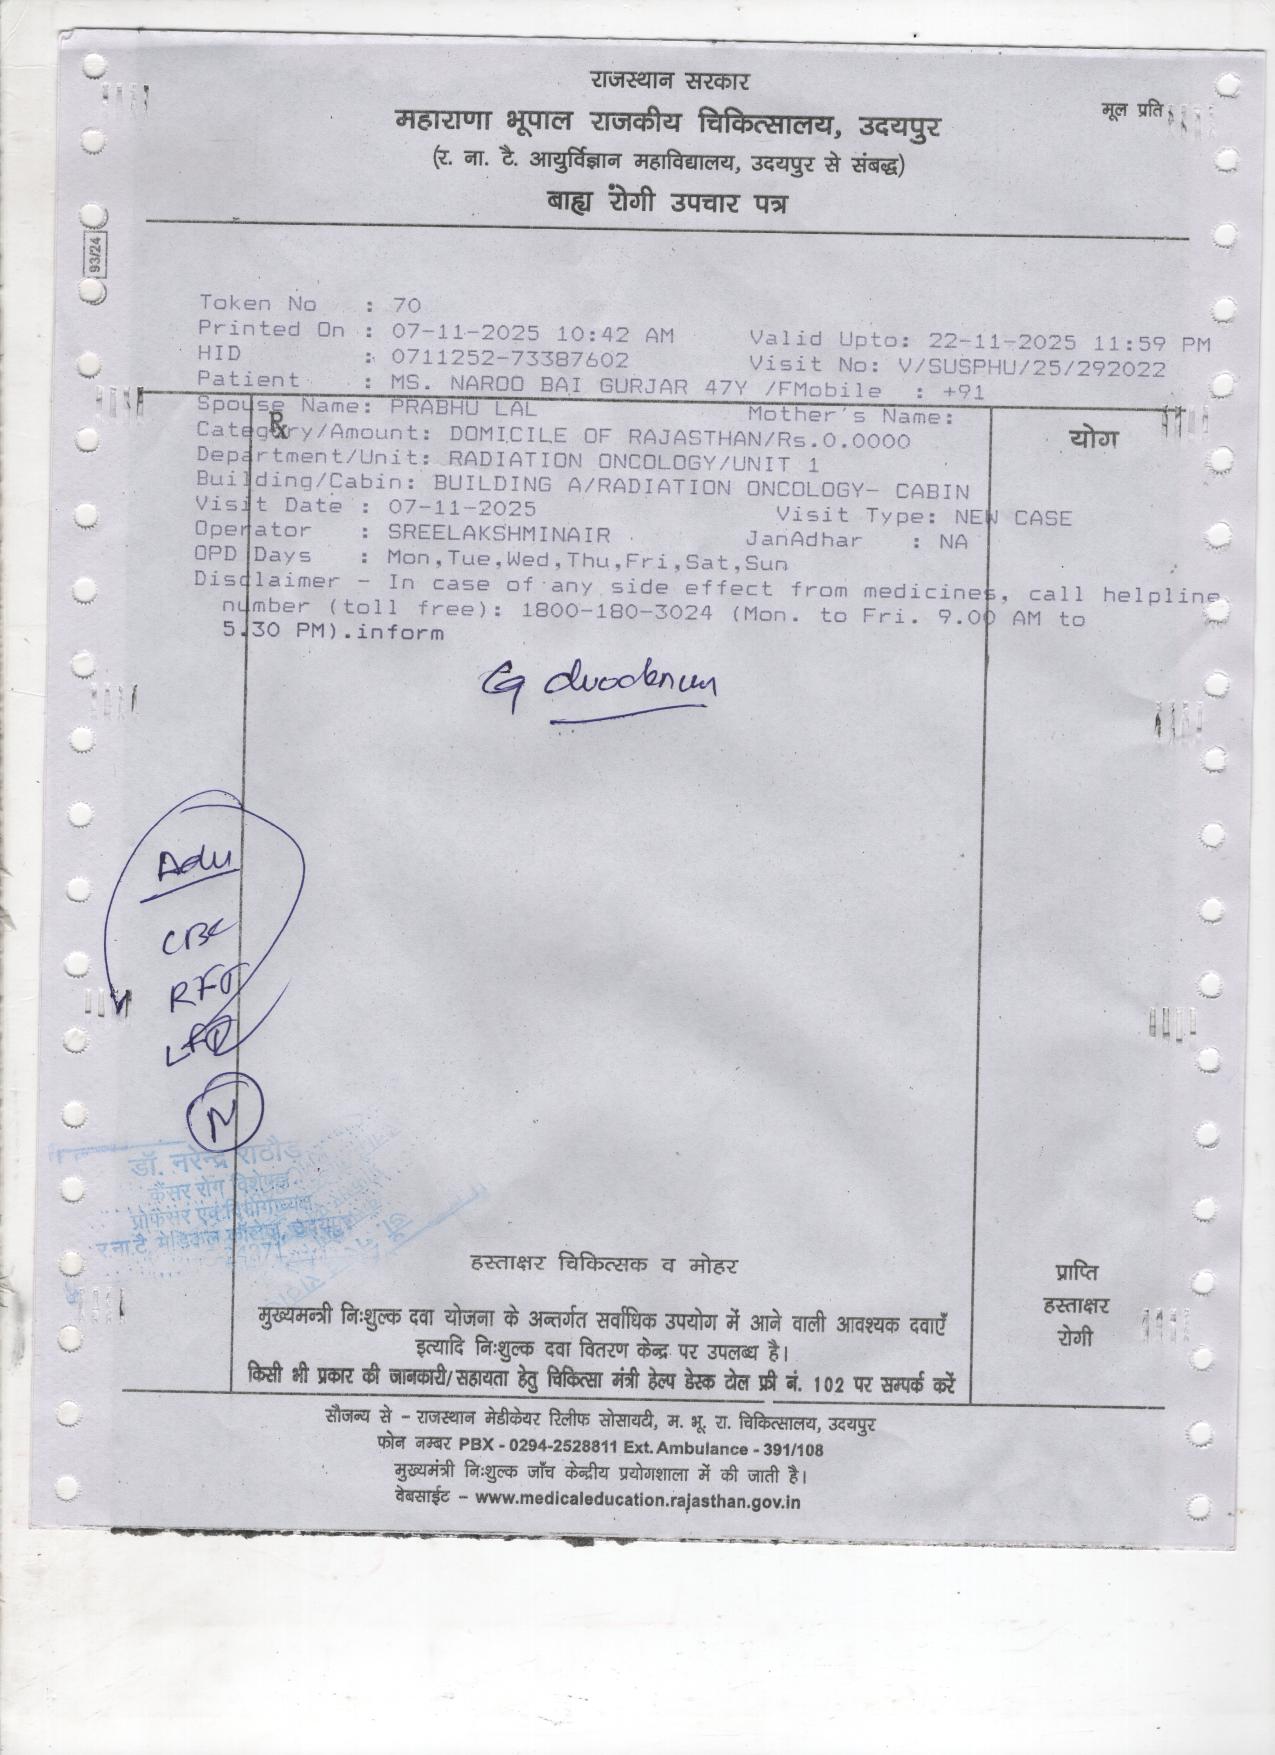 राजस्थान सरकार
मूल प्रति
महाराणा भूपाल राजकीय चिकित्सालय, उदयपुर
(र. ना. टै. आयुर्विज्ञान महाविद्यालय, उदयपुर से संबद्ध)
बाह्य रोगी उपचार पत्र
93/24
Token No : 70
Printed On : 07-11-2025 10:42 AM Valid Upto: 22-11-2025 11:59 PM
HID : 0711252-73387602 Visit No: V/SUSPHU/25/292022
Patient : MS. NAROO BAI GURJAR 47Y /FMobile : +91
Spouse Name: PRABHU LAL Mother's Name:
℞
योग
Category/Amount: DOMICILE OF RAJASTHAN/Rs.0.0000
Department/Unit: RADIATION ONCOLOGY/UNIT 1
Building/Cabin: BUILDING A/RADIATION ONCOLOGY- CABIN
Visit Date : 07-11-2025 Visit Type: NEW CASE
Operator : SREELAKSHMINAIR JanAdhar : NA
OPD Days : Mon,Tue,Wed,Thu,Fri,Sat,Sun
Disclaimer - In case of any side effect from medicines, call helpline
number (toll free): 1800-180-3024 (Mon. to Fri. 9.00 AM to
5.30 PM).inform
duodenum
Adv
CBC
RFT
LFT
डॉ. नरेन्द्र राठौड़
कैंसर रोग विशेषज्ञ
प्रोफेसर एवं विभागाध्यक्ष
र.ना.टै. मेडिकल कॉलेज, उदयपुर
हस्ताक्षर चिकित्सक व मोहर
प्राप्ति
हस्ताक्षर
रोगी
मुख्यमन्त्री निःशुल्क दवा योजना के अन्तर्गत सर्वाधिक उपयोग में आने वाली आवश्यक दवाएँ
इत्यादि निःशुल्क दवा वितरण केन्द्र पर उपलब्ध है।
किसी भी प्रकार की जानकारी/सहायता हेतु चिकित्सा मंत्री हेल्प डेस्क टोल फ्री नं. 102 पर सम्पर्क करें
सौजन्य से – राजस्थान मेडीकेयर रिलीफ सोसायटी, म. भू. रा. चिकित्सालय, उदयपुर
फोन नम्बर PBX - 0294-2528811 Ext. Ambulance - 391/108
मुख्यमंत्री निःशुल्क जाँच केन्द्रीय प्रयोगशाला में की जाती है।
वेबसाईट – www.medicaleducation.rajasthan.gov.in